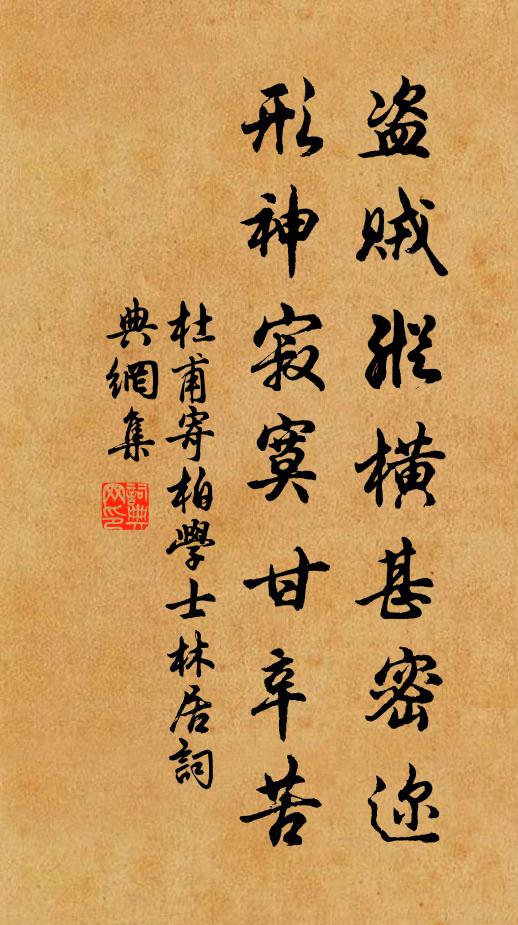 盗贼縱橫甚密迩
形神寂寞甘辛苦
杜甫寄柏學士林居詞
典網集
詞典
网印